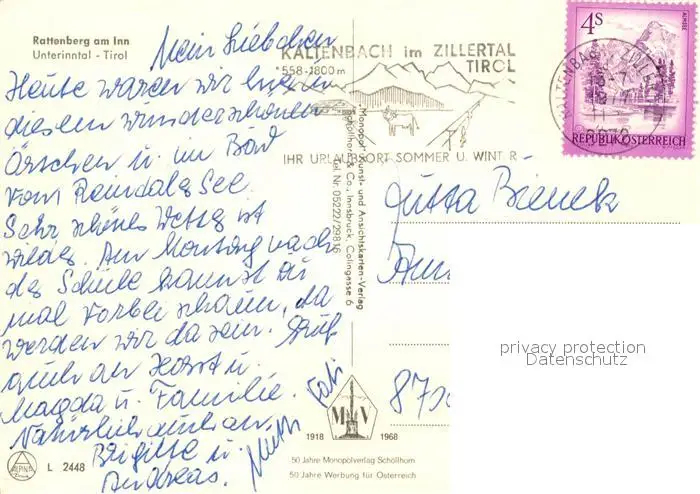 Rattenberg am Inn
Unterinntal - Tirol
Mein Liebchen
Heute waren wir hier in
diesem wunderschönen
Örtchen u. im Bad
vom Reindalersee.
Sehr schönes Wetter ist
wieder. Am Montag nach
der Schule kannst du
mal vorbei schaun, da
werden wir da sein. Gruß
auch an Horst u.
Magda u. Familie.
Natürlich auch an
Brigitte u.
Andreas.
Mutti
KALTENBACH im ZILLERTAL
558-1800m
TIROL
IHR URLAUBSORT SOMMER U. WINT R
4S
ALMSEE
REPUBLIK ÖSTERREICH
KALTENBACH
"Monopol" Kunst- und Ansichtskarten-Verlag
Schöllhorn & Co., Innsbruck, Collingasse 6
Tel. Nr. 05222/29816
Jutta Bienek
870
privacy protection
Datenschutz
M V
1918 1968
50 Jahre Monopolverlag Schöllhorn
50 Jahre Werbung für Österreich
L 2448